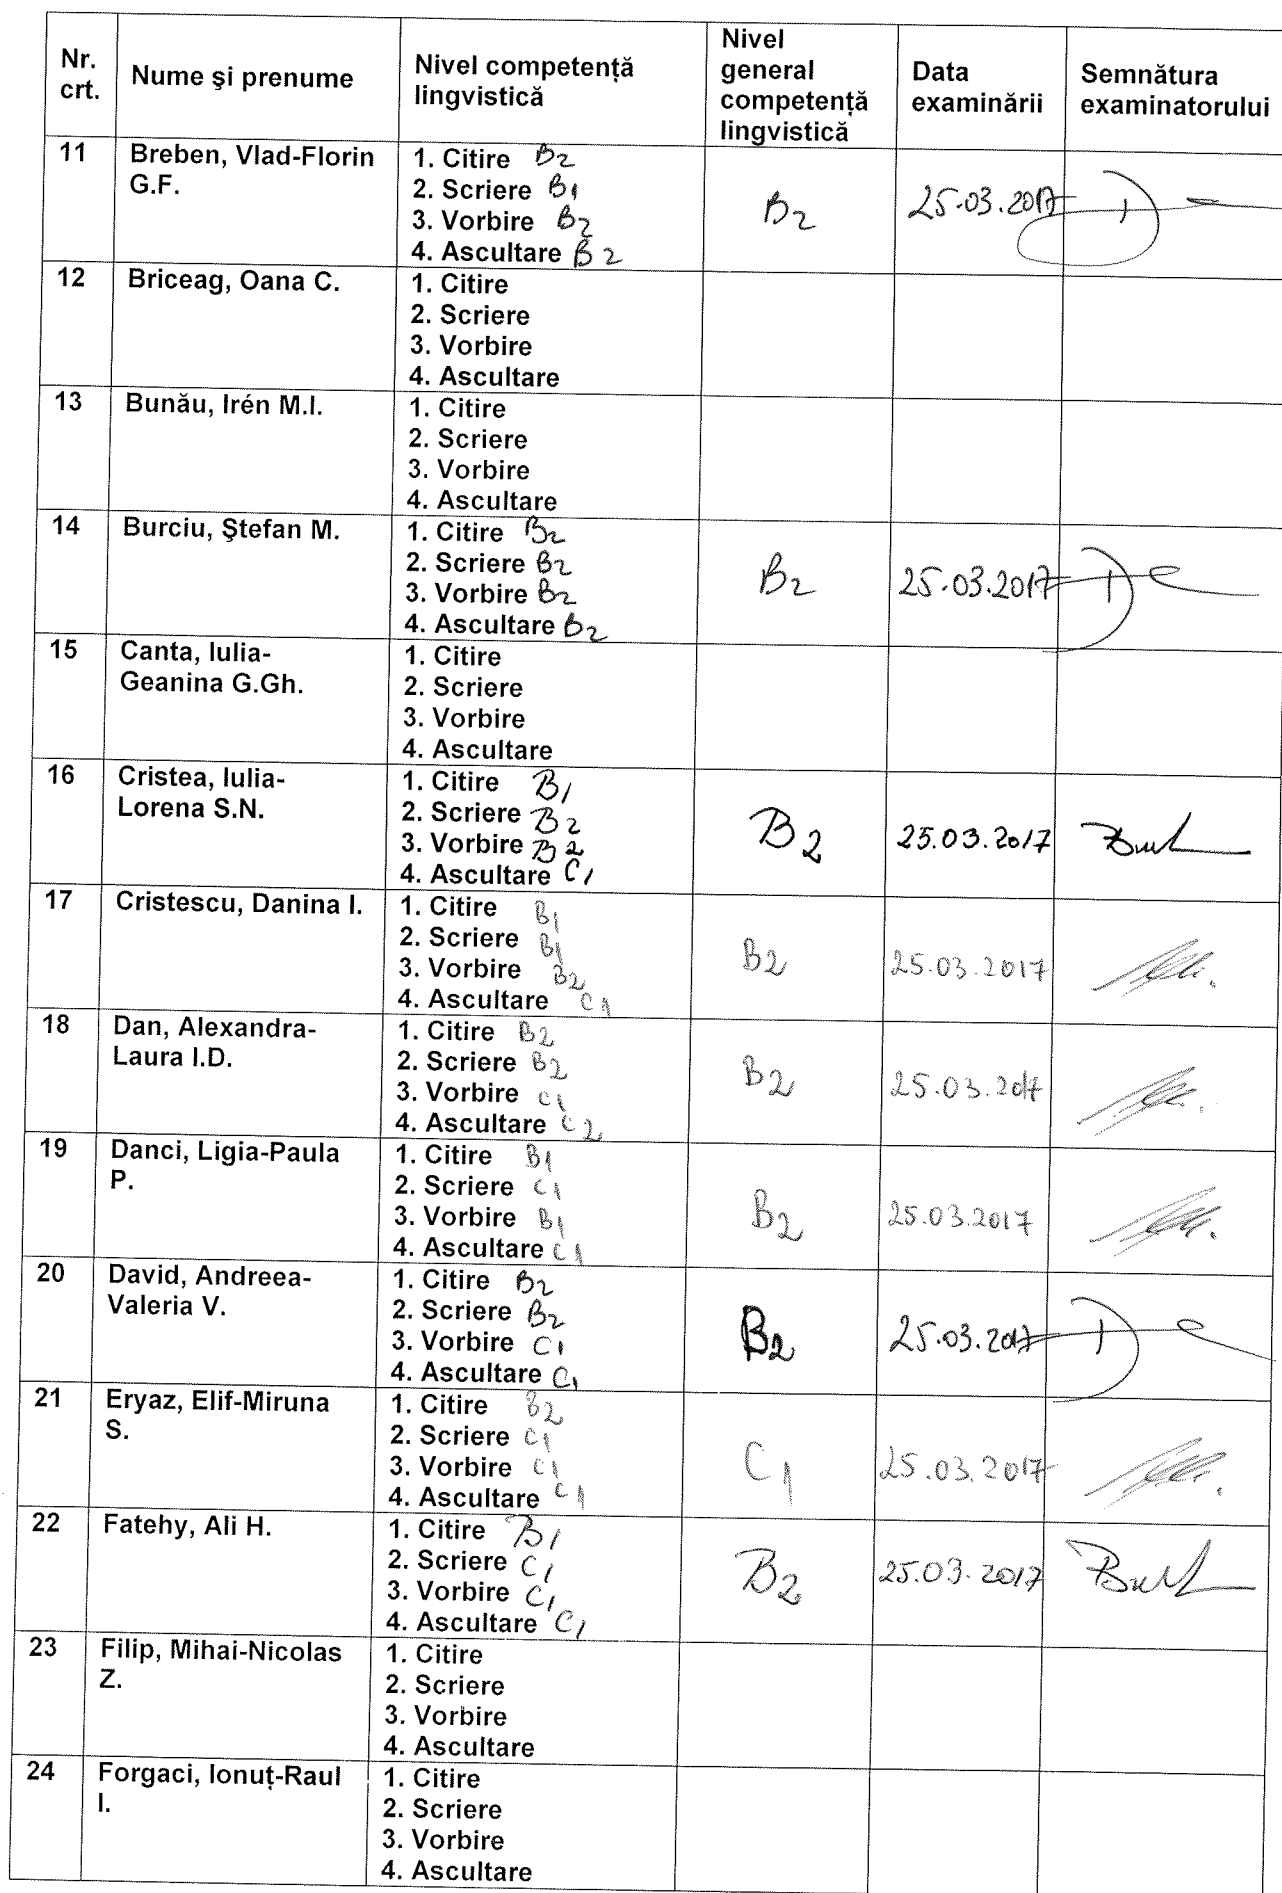 Nr. crt.
Nume şi prenume
Nivel competenţă lingvistică
Nivel general competenţă lingvistică
Data examinării
Semnătura examinatorului
11
Breben, Vlad-Florin
G.F.
1. Citire B2
2. Scriere B1
3. Vorbire B2
4. Ascultare B2
B2
25.03.2017
12
Briceag, Oana C.
1. Citire
2. Scriere
3. Vorbire
4. Ascultare
13
Bunău, Irén M.I.
1. Citire
2. Scriere
3. Vorbire
4. Ascultare
14
Burciu, Ştefan M.
1. Citire B2
2. Scriere B2
3. Vorbire B2
4. Ascultare B2
B2
25.03.2017
15
Canta, Iulia-
Geanina G.Gh.
1. Citire
2. Scriere
3. Vorbire
4. Ascultare
16
Cristea, Iulia-
Lorena S.N.
1. Citire B1
2. Scriere B2
3. Vorbire B2
4. Ascultare C1
B2
25.03.2017
17
Cristescu, Danina I.
1. Citire B1
2. Scriere B1
3. Vorbire B2
4. Ascultare C1
B2
25.03.2017
18
Dan, Alexandra-
Laura I.D.
1. Citire B2
2. Scriere B2
3. Vorbire C1
4. Ascultare C2
B2
25.03.2017
19
Danci, Ligia-Paula
P.
1. Citire B1
2. Scriere C1
3. Vorbire B1
4. Ascultare C1
B2
25.03.2017
20
David, Andreea-
Valeria V.
1. Citire B2
2. Scriere B2
3. Vorbire C1
4. Ascultare C1
B2
25.03.2017
21
Eryaz, Elif-Miruna
S.
1. Citire B2
2. Scriere C1
3. Vorbire C1
4. Ascultare C1
C1
25.03.2017
22
Fatehy, Ali H.
1. Citire B1
2. Scriere C1
3. Vorbire C1
4. Ascultare C1
B2
25.03.2017
23
Filip, Mihai-Nicolas
Z.
1. Citire
2. Scriere
3. Vorbire
4. Ascultare
24
Forgaci, Ionuţ-Raul
I.
1. Citire
2. Scriere
3. Vorbire
4. Ascultare